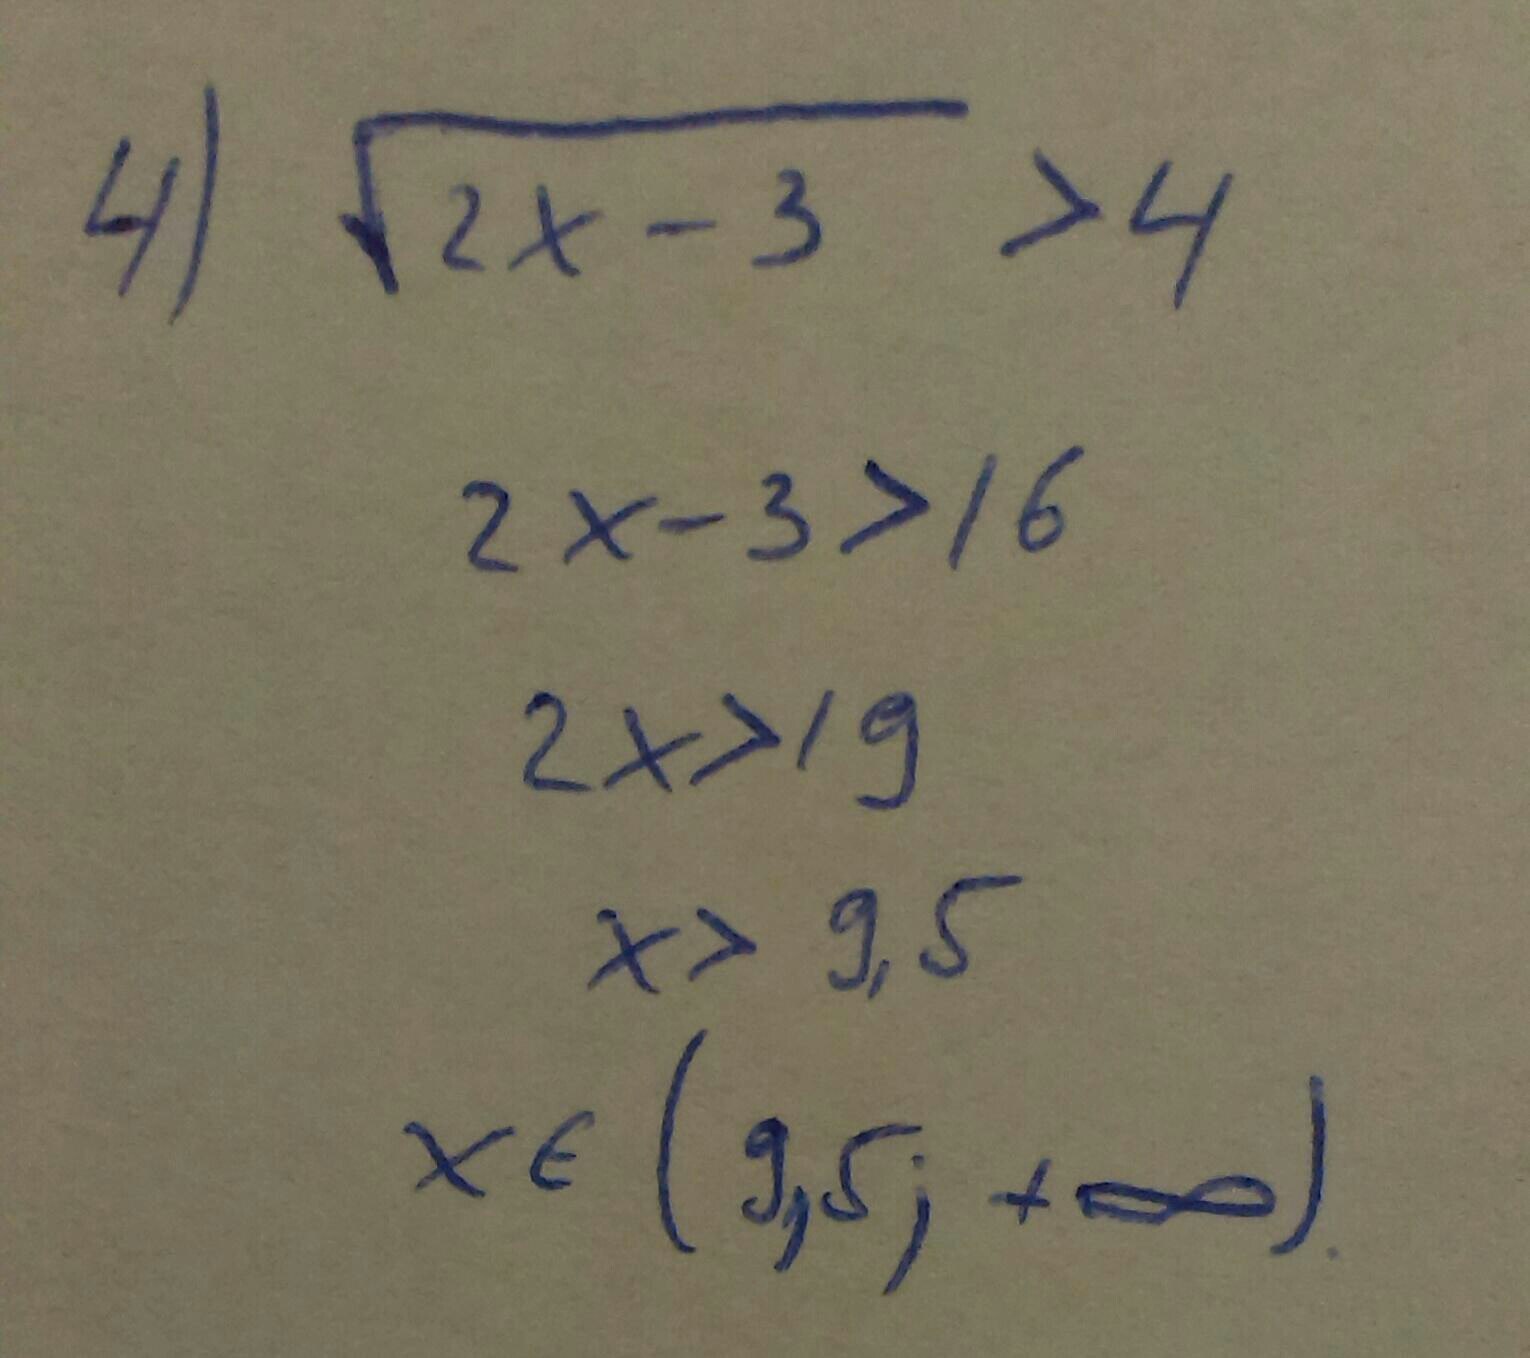 4) √2x - 3 > 4
2x - 3 > 16
2x > 19
x > 9,5
x ∈ (9,5; +∞).